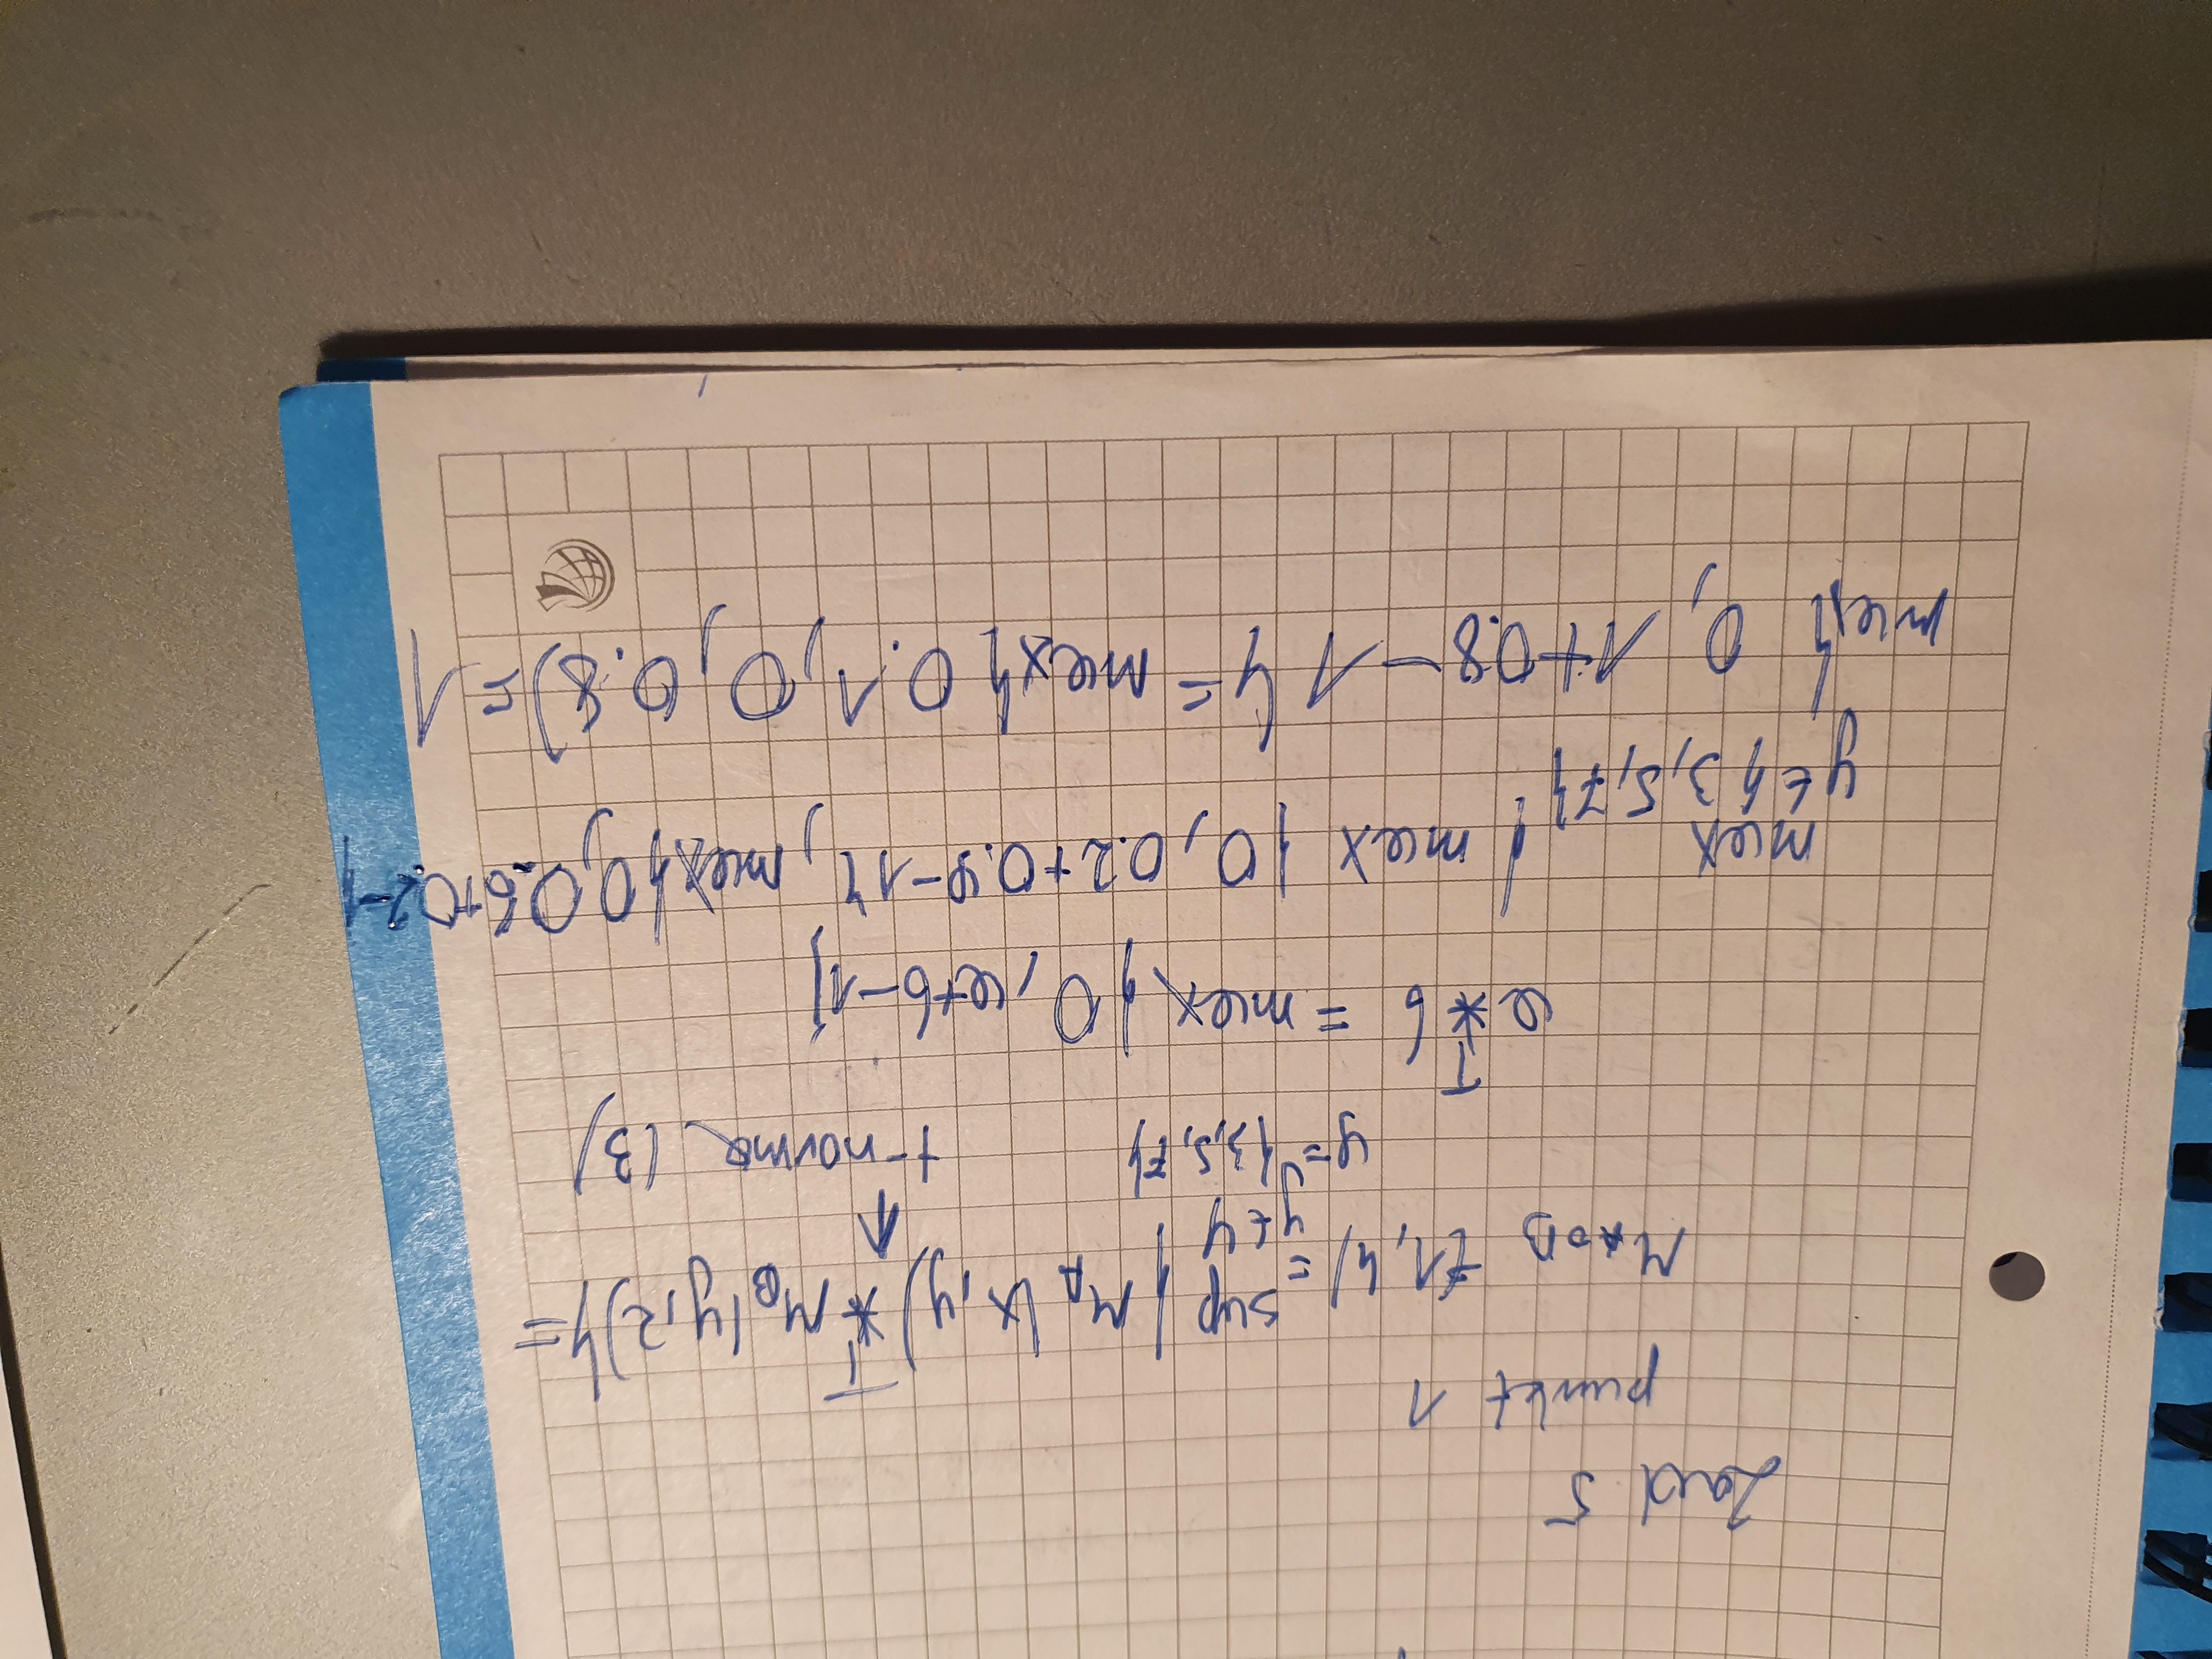 Zad. 5
punkt 1
μ_{A∘B} (1,4) = sup_{y∈Y} { μ_A (x,y) *^T μ_B (y,z) } =
y = {3,5,7} ↑ t-norma (3)
a *^T b = max {0, a+b-1}
max_{y∈{3,5,7}} { max {0, 0.2+0.9-1}, max{0, 0.6+0.2-1}
max{ 0, 1+0.8-1 } = max{ 0.1, 0, 0.8) = 1